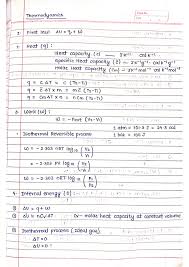 Thermodynamics
First law: ΔU = q + w
Heat (q):
Heat capacity (c) — JK⁻¹ cal k⁻¹
Specific heat capacity (c) — JK⁻¹g⁻¹ cal k⁻¹g⁻¹
molar heat capacity (cm) — JK⁻¹mol⁻¹ cal k⁻¹mol⁻¹
q = c ΔT = c (T₂-T₁)
q = c ΔT × m = mc (T₂-T₁)
q = c ΔT × n = nc (T₂-T₁)
Work (w):
w = -Pext (V₂-V₁)
Isothermal Reversible process
1 atm =
w = -2.303 nRT log (V₂/V₁)
w = -2.303 PV log (V₂/V₁)
w = -2.303 nRT log (P₁/P₂)
Internal energy (U)
ΔU = q + w
ΔU = nCvΔT Cv- molar heat capacity at constant volume
Isothermal process (ideal gas)
ΔT = 0
ΔU = 0